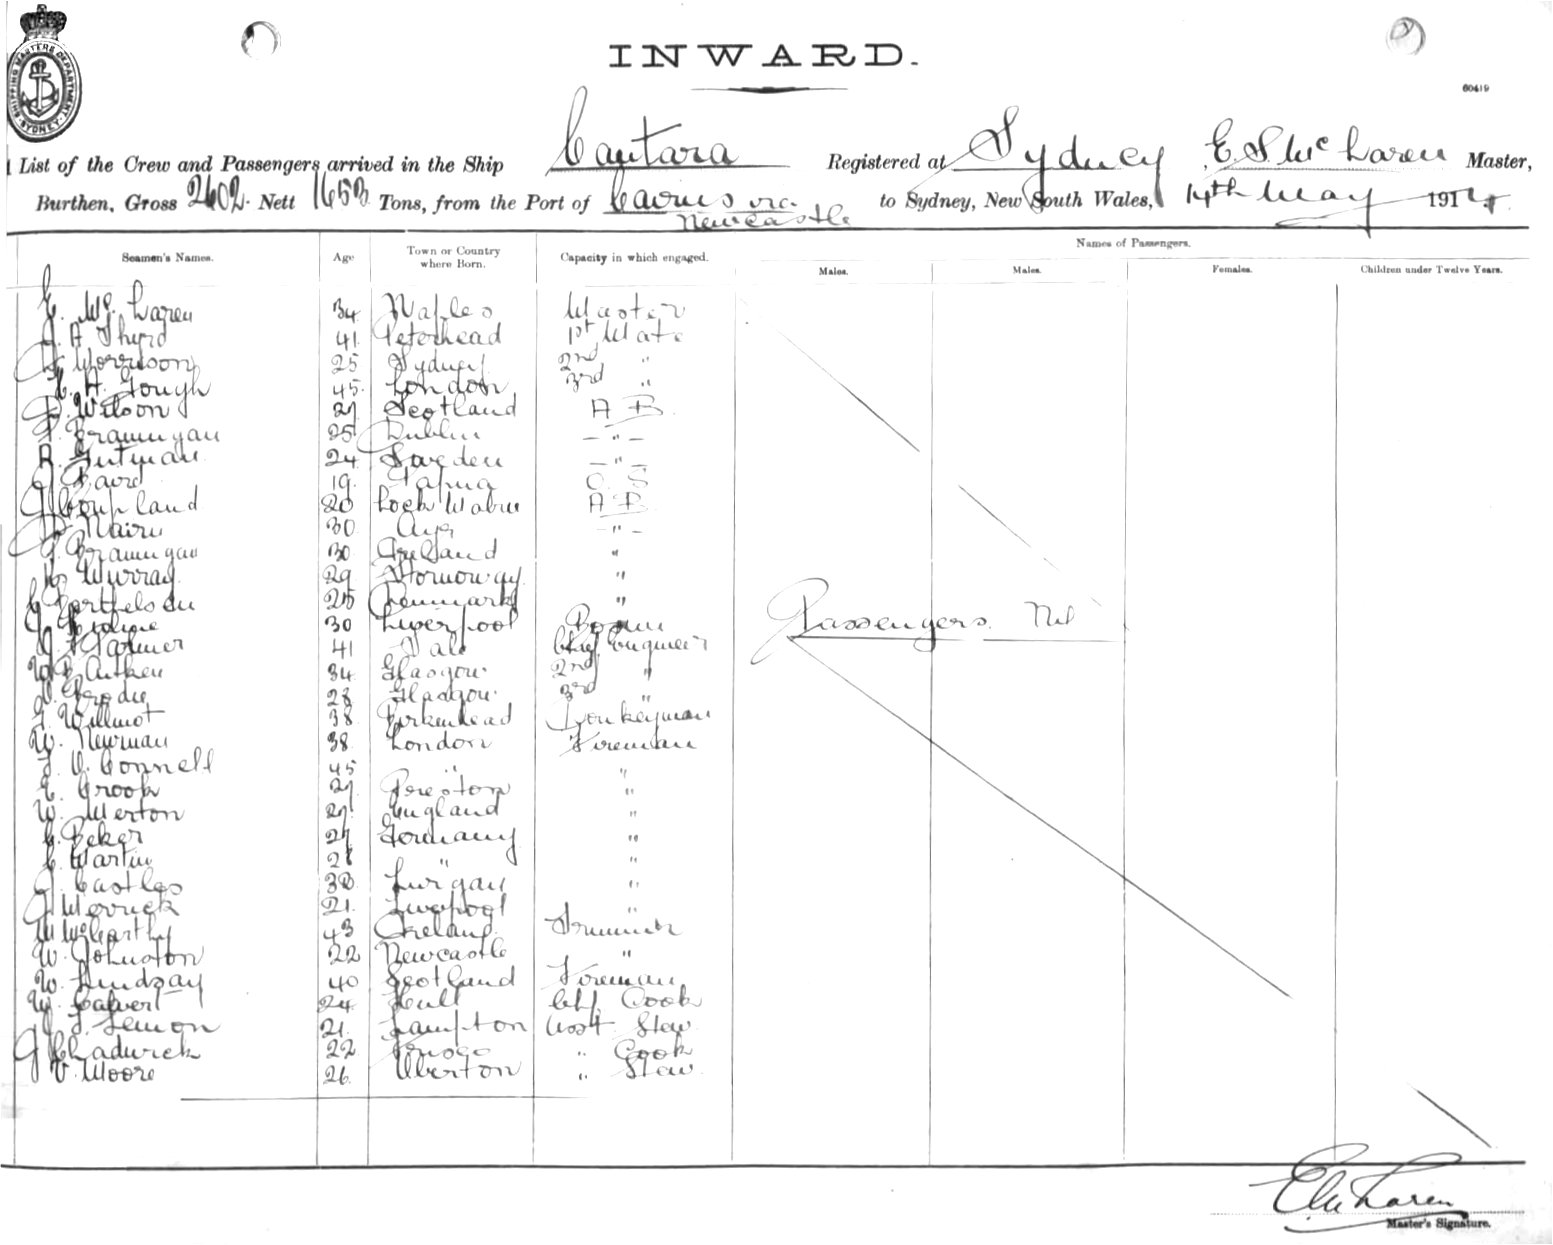 SHIPPING MASTERS DEPARTMENT
SYDNEY
INWARD.
60419
List of the Crew and Passengers arrived in the Ship Cantara Registered at Sydney E. S. McLaren Master,
Burthen, Gross 2402. Nett 1653 Tons, from the Port of Cairns via Newcastle to Sydney, New South Wales, 14th May 1914
Names of Passengers.
Seamen's Names. Age Town or Country where Born. Capacity in which engaged. Males. Males. Females. Children under Twelve Years.
E. McLaren 34 Naples Master
J. A 41 Peterhead 1st Mate
Morrison 25 Sydney 2nd "
A. Gough 45 London 3rd "
Wilson 27 Scotland A B
Brannigan 25 Dublin - " -
R. Gutman 24 Sweden - " -
J Baird 19 Papua O S
J Coupland 20 A B
Nairn 30 Ayr - " -
Brannigan 30 Ireland "
Murray 29 Stornoway "
Bertelsen 25 Denmark "
30 Liverpool Bosun
41 Chief Engineer
W. B. Aitken 34 Glasgow 2nd "
Brodie 28 Glasgow 3rd "
Willmot 38 Birkenhead Donkeyman
W. Newman 38 London Fireman
O'Connell 45 " "
E. Crook 27 Preston "
W. Merton 27 England "
C. Beker 27 Germany "
C. Martin 28 " "
J. Castles 30 Lurgan "
J Merrick 21 Liverpool "
M McCarthy 43 Ireland Trimmer
W. Johnston 22 Newcastle "
W. Lindsay 40 Scotland Fireman
W. Calvert 24 Hull Chf Cook
Lemon 21 Stew
J Chadwick 22 " Cook
V. Moore 26 Oberton " Stew
Passengers. Nil
E McLaren
Master's Signature.